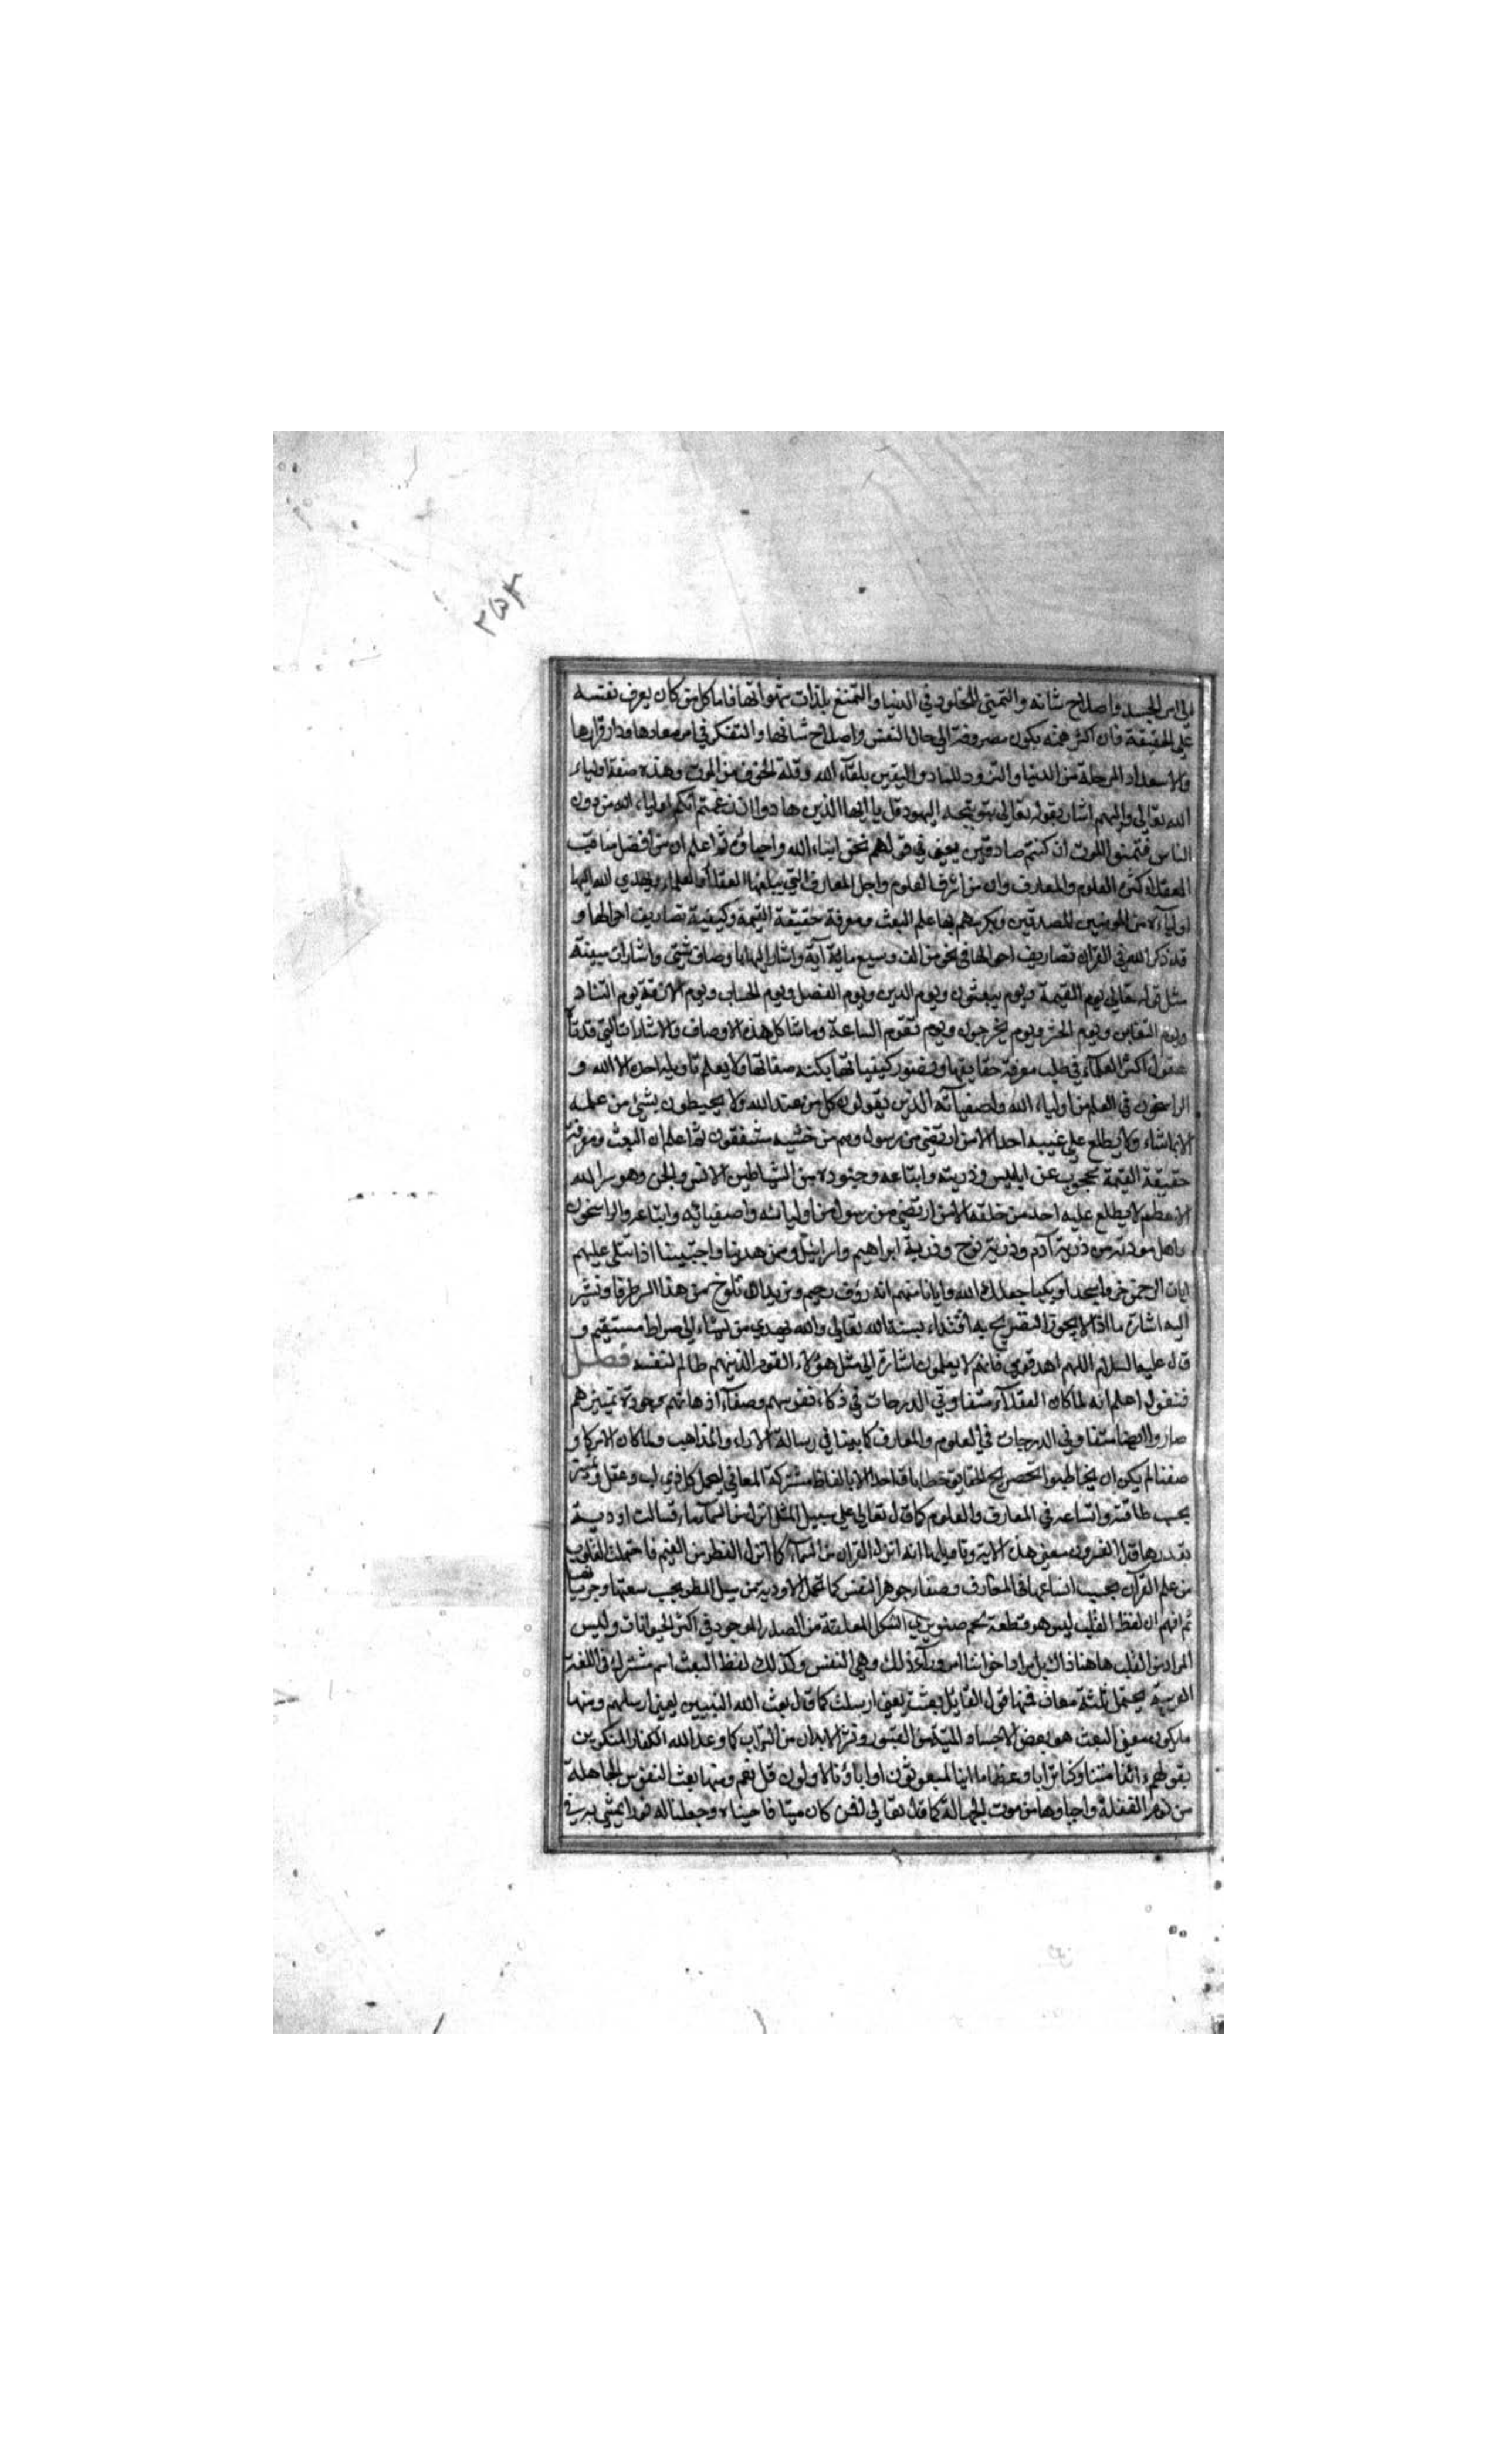 ٢٥٣
الى امر الجسد واصلاح شانه والتمنى للخلود في الدنيا والتمتع بلذات شهواتها فاما كل من كان يعرف نفسه
على الحقيقة فان اكثر همته يكون مصروفة الى حال النفس واصلاح شانها والتفكر في امر معادها ودار قرارها
والاستعداد للرحلة من الدنيا والتزود للمعاد واليقين بلقاء الله وقلة الخوف من الموت وهذه صفة اولياء
الله تعالى واليهم اشار بقوله تعالى بتوبيخه اليهود قل يا ايها الذين هادوا ان زعمتم انكم اولياء الله من دون
الناس فتمنوا الموت ان كنتم صادقين يعني في قولهم نحن ابناء الله واحباؤه ثم اعلم ان من افضل مناقب
العقلاء كثرة العلوم والمعارف وان من اشرف العلوم واجل المعارف التي يبلغها العقلاء العلماء ويهدي الله اليها
اولياءه من المومنين المصدقين ويكرمهم بها علم البعث ومعرفة حقيقة القيمة وكيفية تصاريف احوالها و
قد ذكر الله في القران تصاريف احوالها في نحو من الف وسبع ماية آية واشار اليها باوصاف شتى واشارات مبينة
مثل قوله تعالى يوم القيمة ويوم يبعثون ويوم الدين ويوم الفصل ويوم الحساب ويوم الازفة يوم التناد
ويوم التغابن ويوم الحشر ويوم يخرجون ويوم تقوم الساعة وما شاكل هذه الاوصاف والاشارات التي قد تاه
عقول اكثر العلماء في طلب معرفة حقايقها وتصور كيفياتها بكنه صفاتها ولا يعلم تاويله احد الا الله و
الراسخون في العلم من اولياء الله واصفيائه الذين يقولون كل من عند الله ولا يحيطون بشيء من علمه
الا بما شاء ولا يطلع على غيبه احدا الا من ارتضى من رسول وهم من خشيته مشفقون ثم اعلم ان البعث ومعرفة
حقيقة القيمة محجوب عن ابليس وذريته واتباعه وجنوده من الشياطين الانس والجن وهو سر الله
الاعظم لا يطلع عليه احد من خلقه الا من ارتضى من رسول من اوليائه واصفيائه واتباعه والراسخون
واهل مودته من ذرية آدم وذرية نوح وذرية ابراهيم واسرائيل وممن هدينا واجتبينا اذا تتلى عليهم
ايات الرحمن خروا سجدا وبكيا جعلك الله وايانا منهم انه رؤف رحيم ونريد ان نلوح من هذا السر طرفا ونشير
اليه اشارة ما اذ لا يجوز التصريح به اقتداء بسنة الله تعالى والله يهدي من يشاء الى صراط مستقيم و
قال عليه السلام اللهم اهد قومي فانهم لا يعلمون اشارة الى مثل هؤلاء القوم الذين هم ظالم لنفسه فصل
فنقول اعلم انه لما كان العقلاء متفاوتي الدرجات في ذكاء نفوسهم وصفاء اذهانهم وجودة تمييزهم
صاروا ايضا متفاوتي الدرجات في العلوم والمعارف كما بينا في رسالة الاراء والمذاهب ولما كان الامر كما و
صفنا لم يكن ان يخاطبوا بتصريح الحقايق خطابا واحدا الا بالفاظ مشتركة المعاني ليحمل كل ذي لب وعقل وتمييز
بحسب طاقته واتساعه في المعارف والعلوم كما قال تعالى على سبيل المثل انزل من السماء ماء فسالت اودية
بقدرها قال المفسرون معنى هذه الاية وتاويلها انه انزل القران من السماء كما انزل القطر من الغيم فاحتملت القلوب
من علم القرآن بحسب اتساعها في المعارف وصفاء جوهر النفس كما تحمل الاودية من سيل المطر بحسب سعتها وجريانها
ثم افهم ان لفظ القلب ليس هو قطعة لحم صنوبري الشكل المعلقة من الصدر الموجود في اكثر الحيوانات وليس
المراد من القلب هاهنا ذاك بل مراد اخواننا امر وراء ذلك وهي النفس وكذلك لفظ البعث اسم مشترك في اللغة
العربية يحتمل ثلثة معان فمنها قول القايل بعثت يعني ارسلت كما قال بعث الله النبيين يعني ارسلهم ومنها
ما يكون معنى البعث هو بعض الاجساد الميتة من القبور ونشر الابدان من التراب كما وعد الله الكفار المنكرين
بقولهم ءائذا متنا وكنا ترابا وعظاما اينا لمبعوثون اواباؤنا الاولون قل نعم ومنها بعث النفوس الجاهلة
من نوم الغفلة واحياوها من موت الجهالة كما قال تعالى افمن كان ميتا فاحييناه وجعلنا له نورا يمشي به في